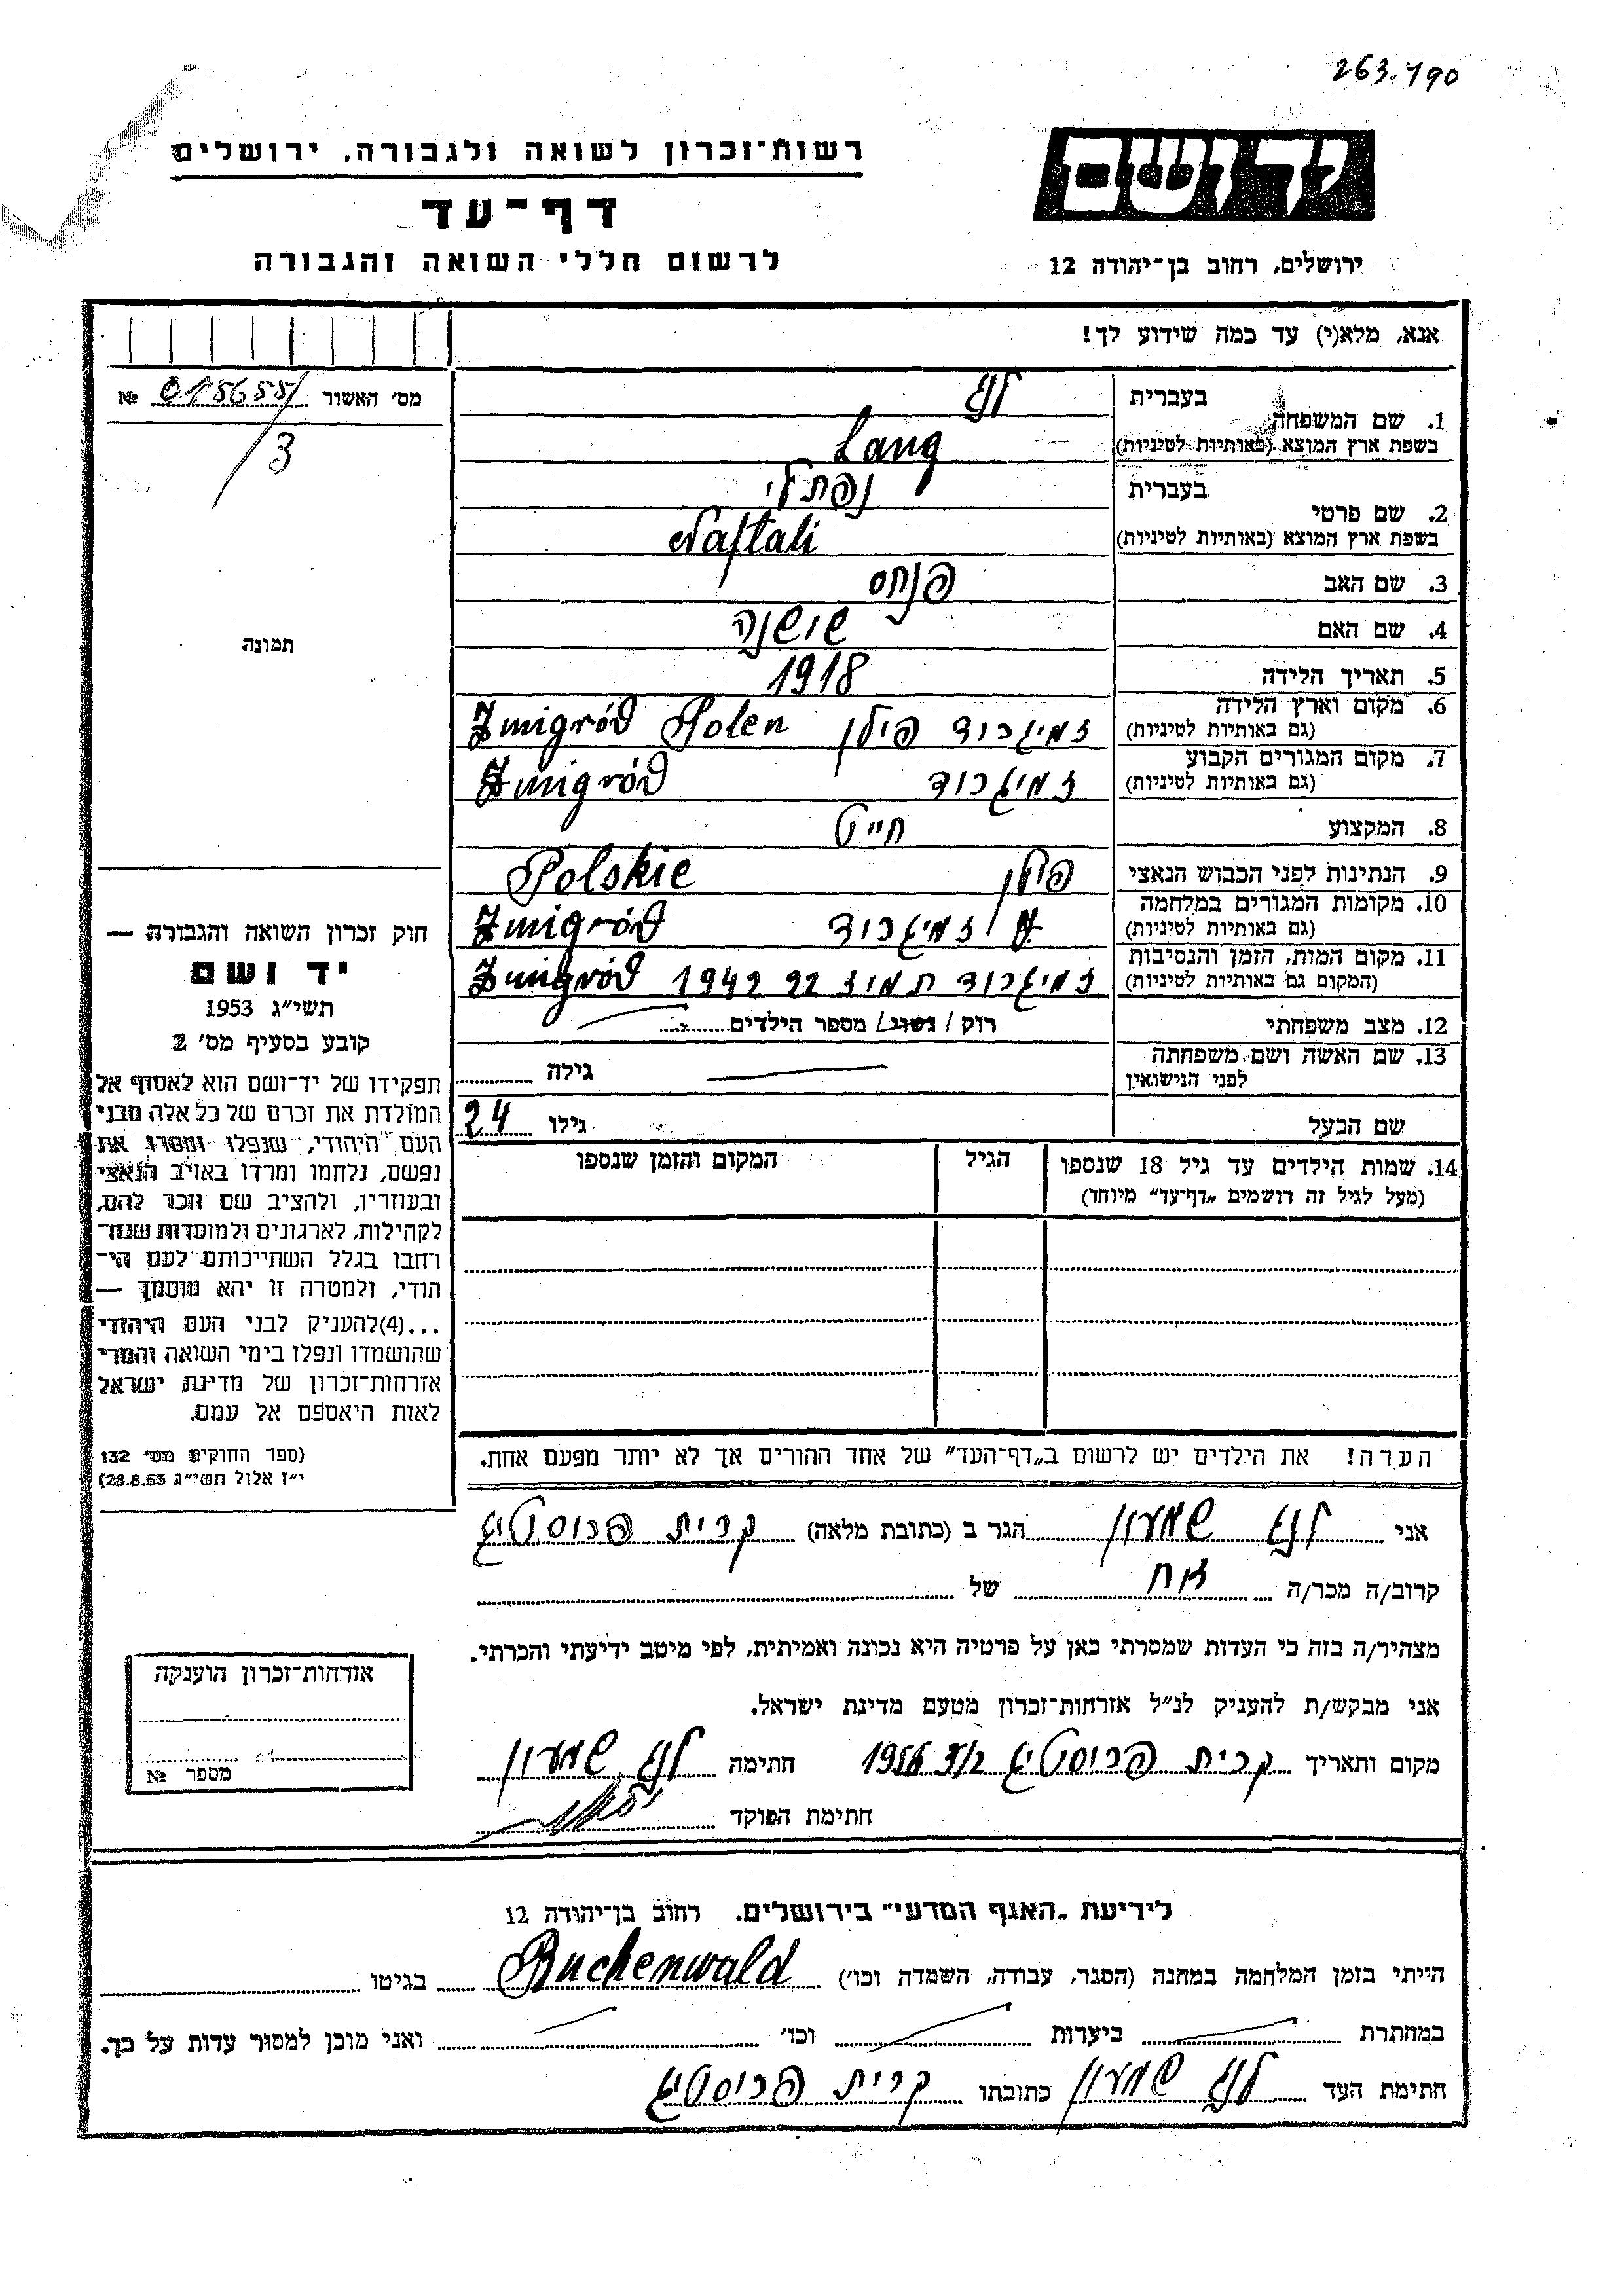 263.190
יד ושם
ירושלים, רחוב בן־יהודה 12
רשות־זכרון לשואה ולגבורה, ירושלים
דף־עד
לרשום חללי השואה והגבורה
אנא, מלא(י) עד כמה שידוע לך!
מס׳ האשור 015655 №
/3
תמונה
1. שם המשפחה בעברית לנג
בשפת ארץ המוצא (באותיות לטיניות) Lang
2. שם פרטי בעברית נפתלי
בשפת ארץ המוצא (באותיות לטיניות) Naftali
3. שם האב פנחס
4. שם האם שושנה
5. תאריך הלידה 1918
6. מקום וארץ הלידה (גם באותיות לטיניות) זמיגרוד פולן Żmigród Polen
7. מקום המגורים הקבוע (גם באותיות לטיניות) זמיגרוד Żmigród
8. המקצוע חייט
9. הנתינות לפני הכבוש הנאצי פולן Polskie
10. מקומות המגורים במלחמה (גם באותיות לטיניות) זמיגרוד Żmigród
11. מקום המות, הזמן והנסיבות (המקום גם באותיות לטיניות) זמיגרוד תמוז 22 1942 Żmigród
12. מצב משפחתי רוק / נשוי / מספר הילדים
13. שם האשה ושם משפחתה לפני הנישואין גילה
שם הבעל גילו 24
14. שמות הילדים עד גיל 18 שנספו הגיל המקום והזמן שנספו
(מעל לגיל זה רושמים „דף־עד” מיוחד)
חוק זכרון השואה והגבורה —
יד ושם
תשי״ג 1953
קובע בסעיף מס׳ 2
תפקידו של יד־ושם הוא לאסוף אל
המולדת את זכרם של כל אלה מבני
העם היהודי, שנפלו ומסרו את
נפשם, נלחמו ומרדו באויב הנאצי
ובעוזריו, ולהציב שם וזכר להם,
לקהילות, לארגונים ולמוסדות שנח־
רחבו בגלל השתייכותם לעם הי־
הודי, ולמטרה זו יהא מוסמך —
...(4) להעניק לבני העם היהודי
שהושמדו ונפלו בימי השואה והמרי
אזרחות־זכרון של מדינת ישראל
לאות היאספם אל עמם.
(ספר החוקים מס׳ 132
י״ז אלול תשי״ג 28.8.53)
הערה! את הילדים יש לרשום ב„דף־העד” של אחד ההורים אך לא יותר מפעם אחת.
אני לנג שמעון הגר ב (כתובת מלאה) קרית פרוסטיג
קרוב/ה מכר/ה אח של
מצהיר/ה בזה כי העדות שמסרתי כאן על פרטיה היא נכונה ואמיתית, לפי מיטב ידיעתי והכרתי.
אני מבקש/ת להעניק לנ״ל אזרחות־זכרון מטעם מדינת ישראל.
מקום ותאריך קרית פרוסטיג חתימה לנג שמעון
חתימת הפוקד
אזרחות־זכרון הוענקה
מספר №
לידיעת „האגף המדעי” בירושלים. רחוב בן־יהודה 12
הייתי בזמן המלחמה במחנה (הסגר, עבודה, השמדה וכו׳) Buchenwald בגיטו
במחתרת ביערות וכו׳ ואני מוכן למסור עדות על כך.
חתימת העד לנג שמעון כתובתו קרית פרוסטיג